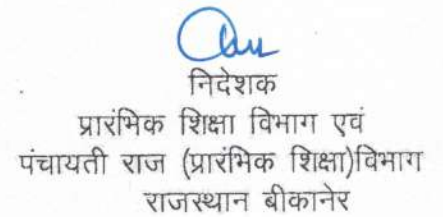 निदेशक
प्रारंभिक शिक्षा विभाग एवं
पंचायती राज (प्रारंभिक शिक्षा)विभाग
राजस्थान बीकानेर